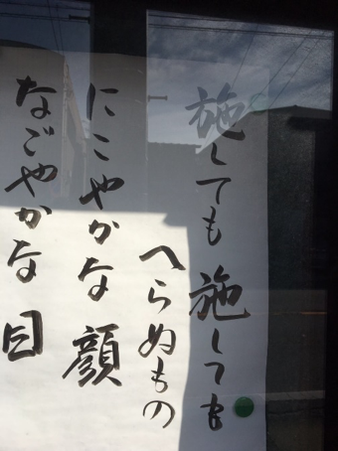 施しても 施しても
へらぬもの
にこやかな 顔
なごやかな 目